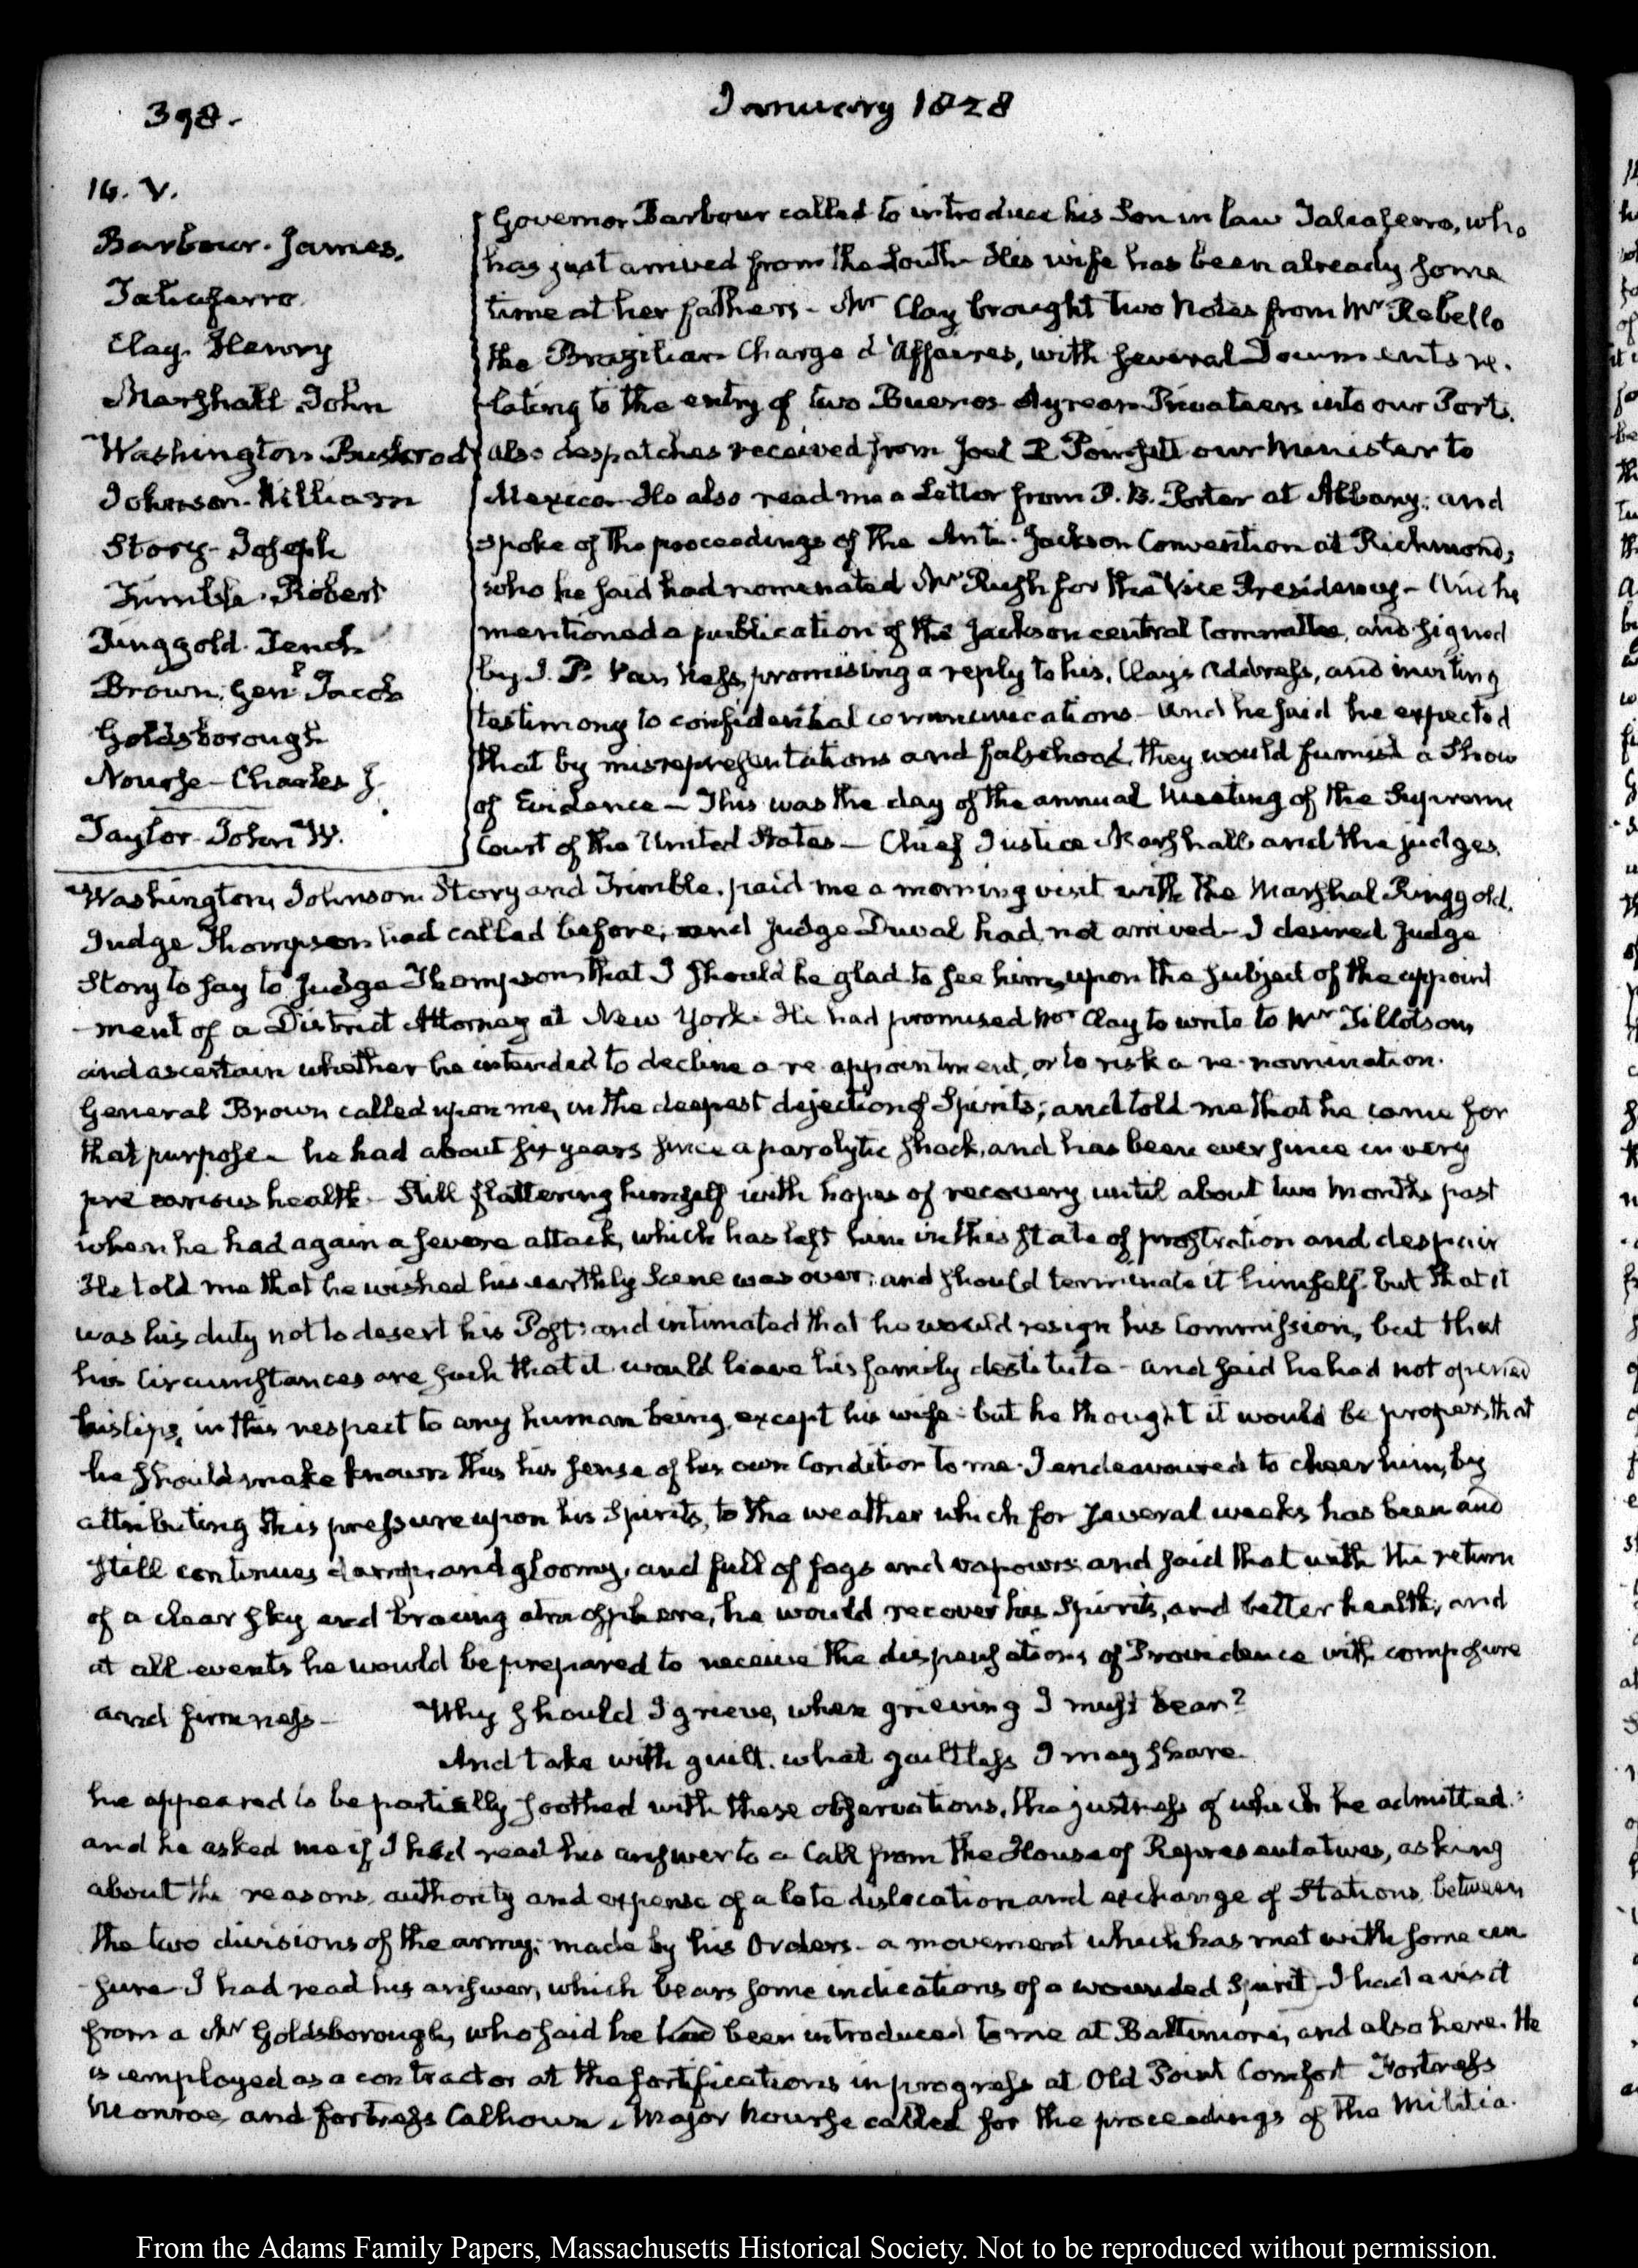 398.
January 1828
14. V.
Barbour. James.
Taliaferro
Clay. Henry
Marshall John
Washington Bushrod
Johnson. William
Story. Joseph
Trimble. Robert
Ringgold. Tench
Brown. Genl. Jacob
Goldsborough
Nourse — Charles J.
Taylor. John W.
Governor Barbour called to introduce his Son in law Taliaferro, who
has just arrived from the South. His wife has been already some
time at her fathers — Mr Clay brought two Notes from Mr Rebello
the Brazilian Chargé d'Affaires, with several Documents re-
lating to the entry of two Buenos Ayrean Privateers into our Ports.
also despatches received from Joel R Poinsett our Minister to
Mexico. He also read me a Letter from P. B. Porter at Albany; and
spoke of the proceedings of the Anti-Jackson Convention at Richmond;
who he said had nominated Mr Rush for the Vice Presidency — And he
mentioned a publication of the Jackson central Committee, and signed
by J. P. Van Ness, promising a reply to his, Clay's Address, and inviting
testimony to confidential communications — And he said he expected
that by misrepresentations and falsehood, they would furnish a Show
of Evidence — This was the day of the annual Meeting of the Supreme
Court of the United States — Chief Justice Marshall and the judges
Washington, Johnson Story and Trimble. paid me a morning visit with the Marshal Ringgold.
Judge Thompson had called before, and Judge Duval had not arrived — I desired Judge
Story to say to Judge Thompson that I should be glad to see him, upon the subject of the appoint
-ment of a District Attorney at New York. He had promised Mr Clay to write to Mr Tillotson,
and ascertain whether he intended to decline a re-appointment, or to risk a re-nomination.
General Brown called upon me, in the deepest dejection of Spirits; and told me that he came for
that purpose — he had about six years since a paralytic shock, and has been ever since in very
precarious health — Still flattering himself with hopes of recovery until about two Months past
when he had again a severe attack, which has left him in this state of prostration and despair
He told me that he wished his earthly Scene was over; and should terminate it himself but that it
was his duty not to desert his Post: and intimated that he would resign his Commission, but that
his Circumstances are such that it would leave his family destitute — and said he had not opened
his lips, in this respect to any human being, except his wife: but he thought it would be proper, that
he should make known this his sense of his own Condition to me. I endeavoured to cheer him, by
attributing this pressure upon his Spirits, to the weather which for several weeks has been and
still continues damp, and gloomy, and full of fogs and vapours; and said that with the return
of a clear sky and bracing atmosphere, he would recover his Spirits, and better health; and
at all events he would be prepared to receive the dispensations of Providence with composure
and firmness —    Why should I grieve, when grieving I must bear?
And take with guilt. what guiltless I may share.
he appeared to be partially soothed with these observations, the justness of which he admitted:
and he asked me if I had read his answer to a Call from the House of Representatives, asking
about the reasons, authority and expense of a late dislocation and exchange of Stations, between
the two divisions of the army; made by his Orders — a movement which has met with some cen
-sure — I had read his answer, which bears some indications of a wounded Spirit — I had a visit
from a Mr Goldsborough, who said he had been introduced to me at Baltimore, and also here. He
is employed as a contractor at the fortifications in progress at Old Point Comfort Fortress
Monroe, and fortress Calhoun. Major Nourse called for the proceedings of the Militia.
From the Adams Family Papers, Massachusetts Historical Society. Not to be reproduced without permission.